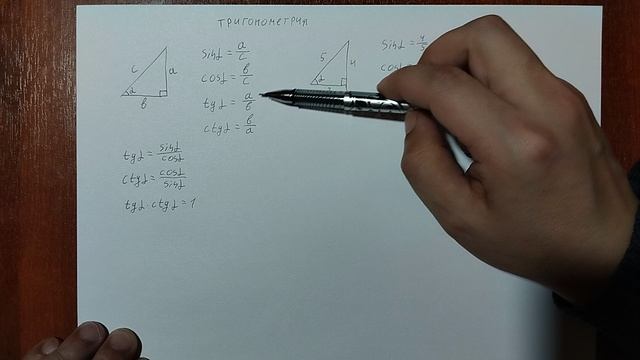 тригонометрия
c a α b
sinα = a/c
cosα = b/c
tgα = a/b
ctgα = b/a
5 4 α
sinα = 4/5
cosα
tgα = sinα/cosα
ctgα = cosα/sinα
tgα · ctgα = 1